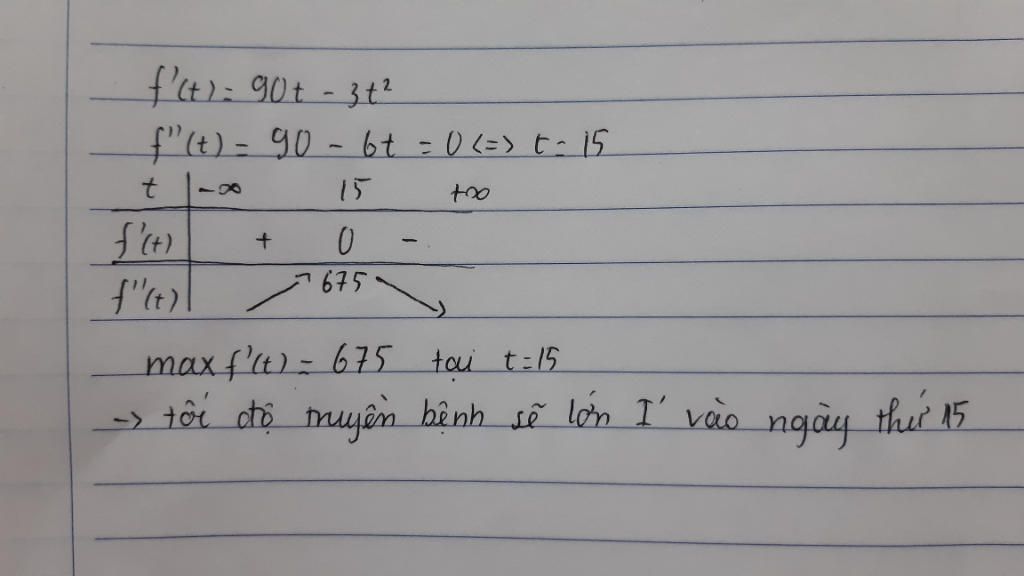 f'(t) = 90t - 3t²
f''(t) = 90 - 6t = 0 <=> t = 15
t | -∞ 15 +∞
f'(t) | + 0 -
f''(t) | ↗ 675 ↘
max f'(t) = 675 tại t = 15
-> tốc độ truyền bệnh sẽ lớn I' vào ngày thứ 15